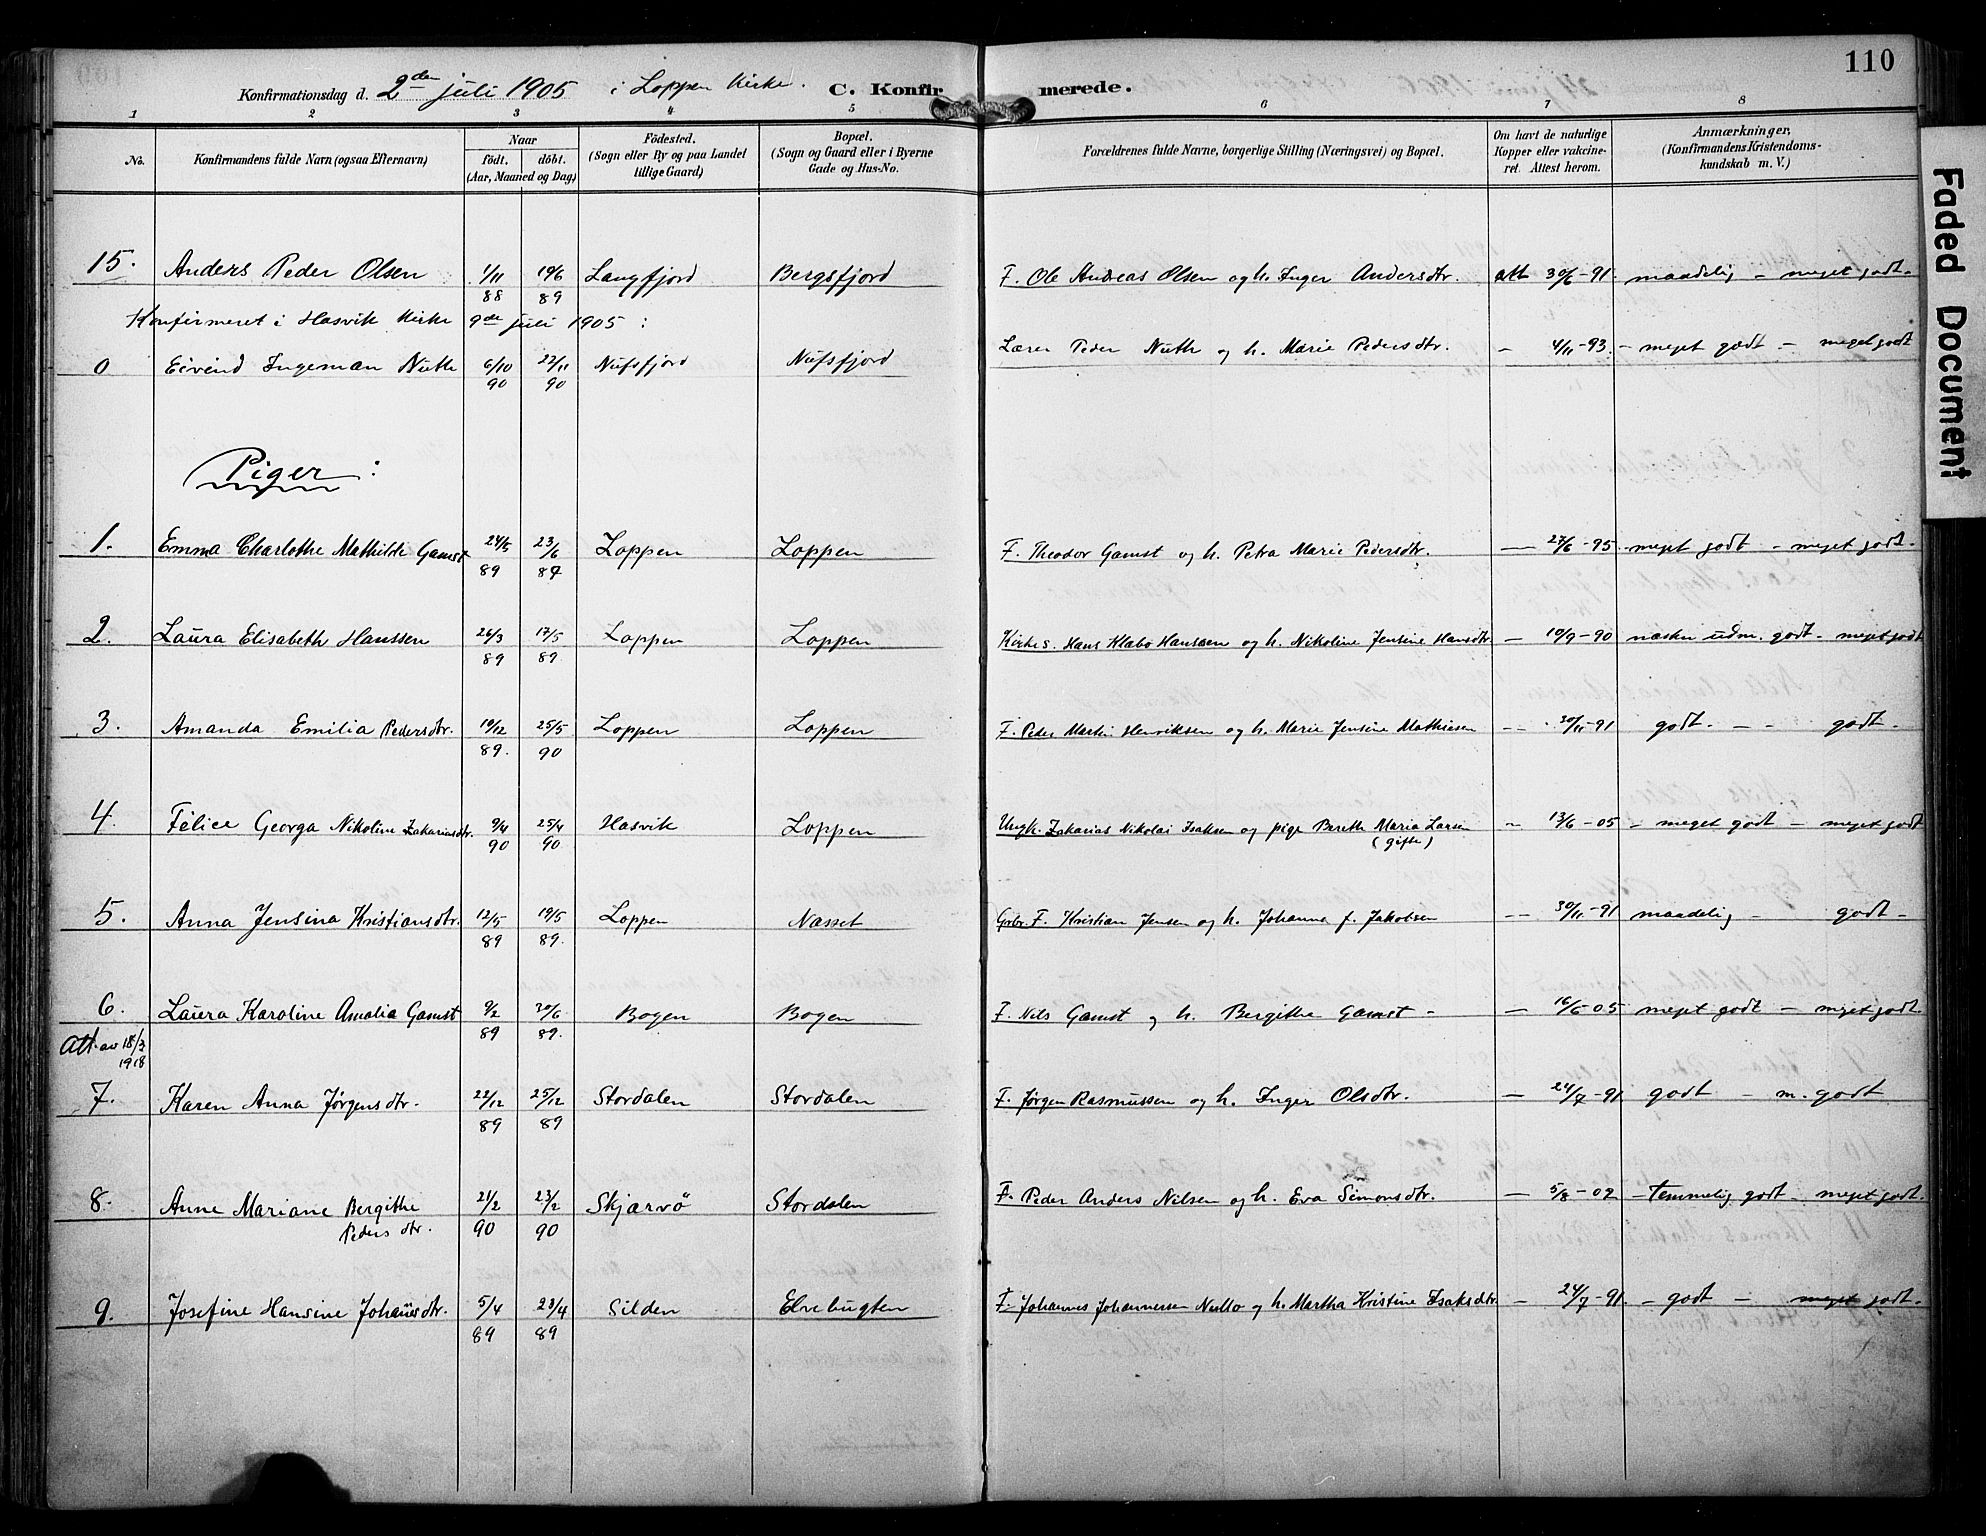 110
Konfirmationsdag d. 2den juli 1905 i Loppen Kirke. C. Konfirmerede.
1 2 3 4 5 6 7 8
No. Konfirmandens fulde Navn (ogsaa Efternavn) Naar født. døbt. (Aar, Maaned og Dag) Födested. (Sogn eller By og paa Landet tillige Gaard) Bopæl. (Sogn og Gaard eller i Byerne Gade og Hus-No. Forældrenes fulde Navne, borgerlige Stilling (Næringsvei) og Bopæl. Om havt de naturlige Kopper eller vakcineret. Attest herom. Anmærkninger, (Konfirmandens Kristendomskundskab m. V.)
15. Anders Peder Olsen 1/11 88 19/6 89 Langfjord Bergsfjord F. Ole Andreas Olsen og h. Inger Andersdtr. att 30/6-91 maadelig - meget godt.
Konfirmeret i Hasvik Kirke 9de juli 1905 :
0 Eivind Ingeman Nuth 6/10 90 22/11 90 Nufsfjord Nufsfjord Lærer Peder Nuth og h. Marie Pedersdtr. - 4/11-93. - meget godt - meget godt
Piger :
1. Emma Charlothe Mathilde Gamst 24/5 89 23/6 89 Loppen Loppen F. Theodor Gamst og h. Petra Marie Pedersdtr. - 27/6-95 - meget godt - meget godt.
2. Laura Elisabeth Hanssen 26/3 89 17/5 89. Loppen Loppen Kirkes. Hans Klæbo Hanssen og h. Nikoline Jensine Hansdtr. - 10/9-90 næsten udm. godt - meget godt
3. Amanda Emilia Pedersdtr. 10/12 89. 25/5 90 Loppen Loppen F. Peder Martin Henriksen og h. Marie Jensine Mathiesen - 30/11-91 godt. - - godt.
4. Felice Georga Nikoline Zakariasdtr. 9/4 90 25/4 90 Hasvik Loppen Ungk. Zakarias Nikolai Isaksen og pige Bereth Maria Larsen (gifte) - 13/6-05 - meget godt - meget godt
5. Anna Jensina Kristiansdtr. 12/5 89 19/5 89. Loppen Næsset Gbr. F. Kristian Jensen og h. Johanna f. Jakobsen - 30/11-91 maadelig - godt -
6. Laura Karoline Amalia Gamst 9/2 89 20/6 89. Bogen Bogen F. Nels Gamst og h. Bergithe Gamst - - 16/6-05 meget godt - meget godt.
Att. av 18/3 1918
7. Karen Anna Jørgensdtr. 22/12 89 25/12 89 Stordalen Stordalen F. Jørgen Rasmussen og h. Inger Olsdtr. - 24/7-91 godt - m. godt
8. Anne Mariane Bergithe Pedersdtr. 21/2 90 23/2 90 Skjærvø Stordalen F. Peder Anders Nilsen og h. Eva Simonsdtr. - 5/8-02 - temmelig godt - meget godt.
9. Josefine Hansine Johansdtr. 5/4 89 23/4 89 Silden Elvebugten F. Johannes Johannessen Nullo og h. Martha Kristine Isaksdtr - 24/7-91. - godt - meget godt.
Faded Document